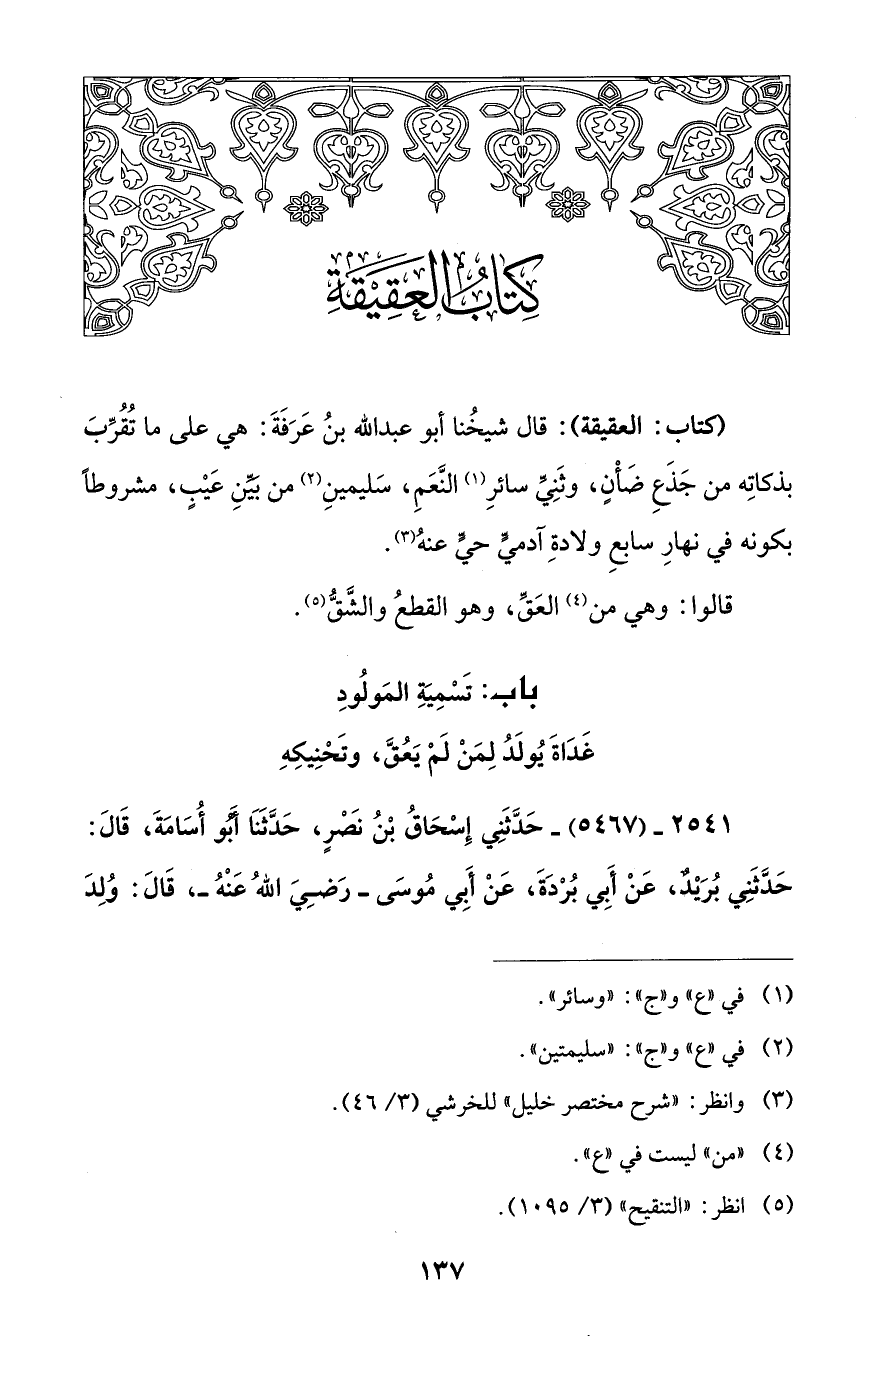 كِتَابُ العَقِيقَةِ
(كتاب: العقيقة): قال شيخُنا أبو عبدالله بنُ عَرَفَةَ: هي على ما تُقُرِّبَ
بذكاتِه من جَذَعِ ضَأْنٍ، وثَنِيِّ سائرِ(١) النَّعَمِ، سَليمينِ(٢) من بَيِّنِ عَيْبٍ، مشروطاً
بكونه في نهارِ سابعِ ولادةِ آدميٍّ حيٍّ عنهُ(٣).
قالوا: وهي من(٤) العَقِّ، وهو القطعُ والشَّقُّ(٥).
باب: تَسْمِيَةِ المَولُودِ
غَدَاةَ يُولَدُ لِمَنْ لَمْ يَعُقَّ، وتَحْنِيكِهِ
٢٥٤١ - (٥٤٦٧) - حَدَّثَنِي إِسْحَاقُ بْنُ نَصْرٍ، حَدَّثَنَا أَبُو أُسَامَةَ، قَالَ:
حَدَّثَنِي بُرَيْدٌ، عَنْ أَبِي بُرْدَةَ، عَنْ أَبِي مُوسَى - رَضِيَ اللهُ عَنْهُ -، قَالَ: وُلِدَ
(١) في «ع» و«ج»: «وسائر».
(٢) في «ع» و«ج»: «سليمتين».
(٣) وانظر: «شرح مختصر خليل» للخرشي (٣/ ٤٦).
(٤) «من» ليست في «ع».
(٥) انظر: «التنقيح» (٣/ ١٠٩٥).
١٣٧